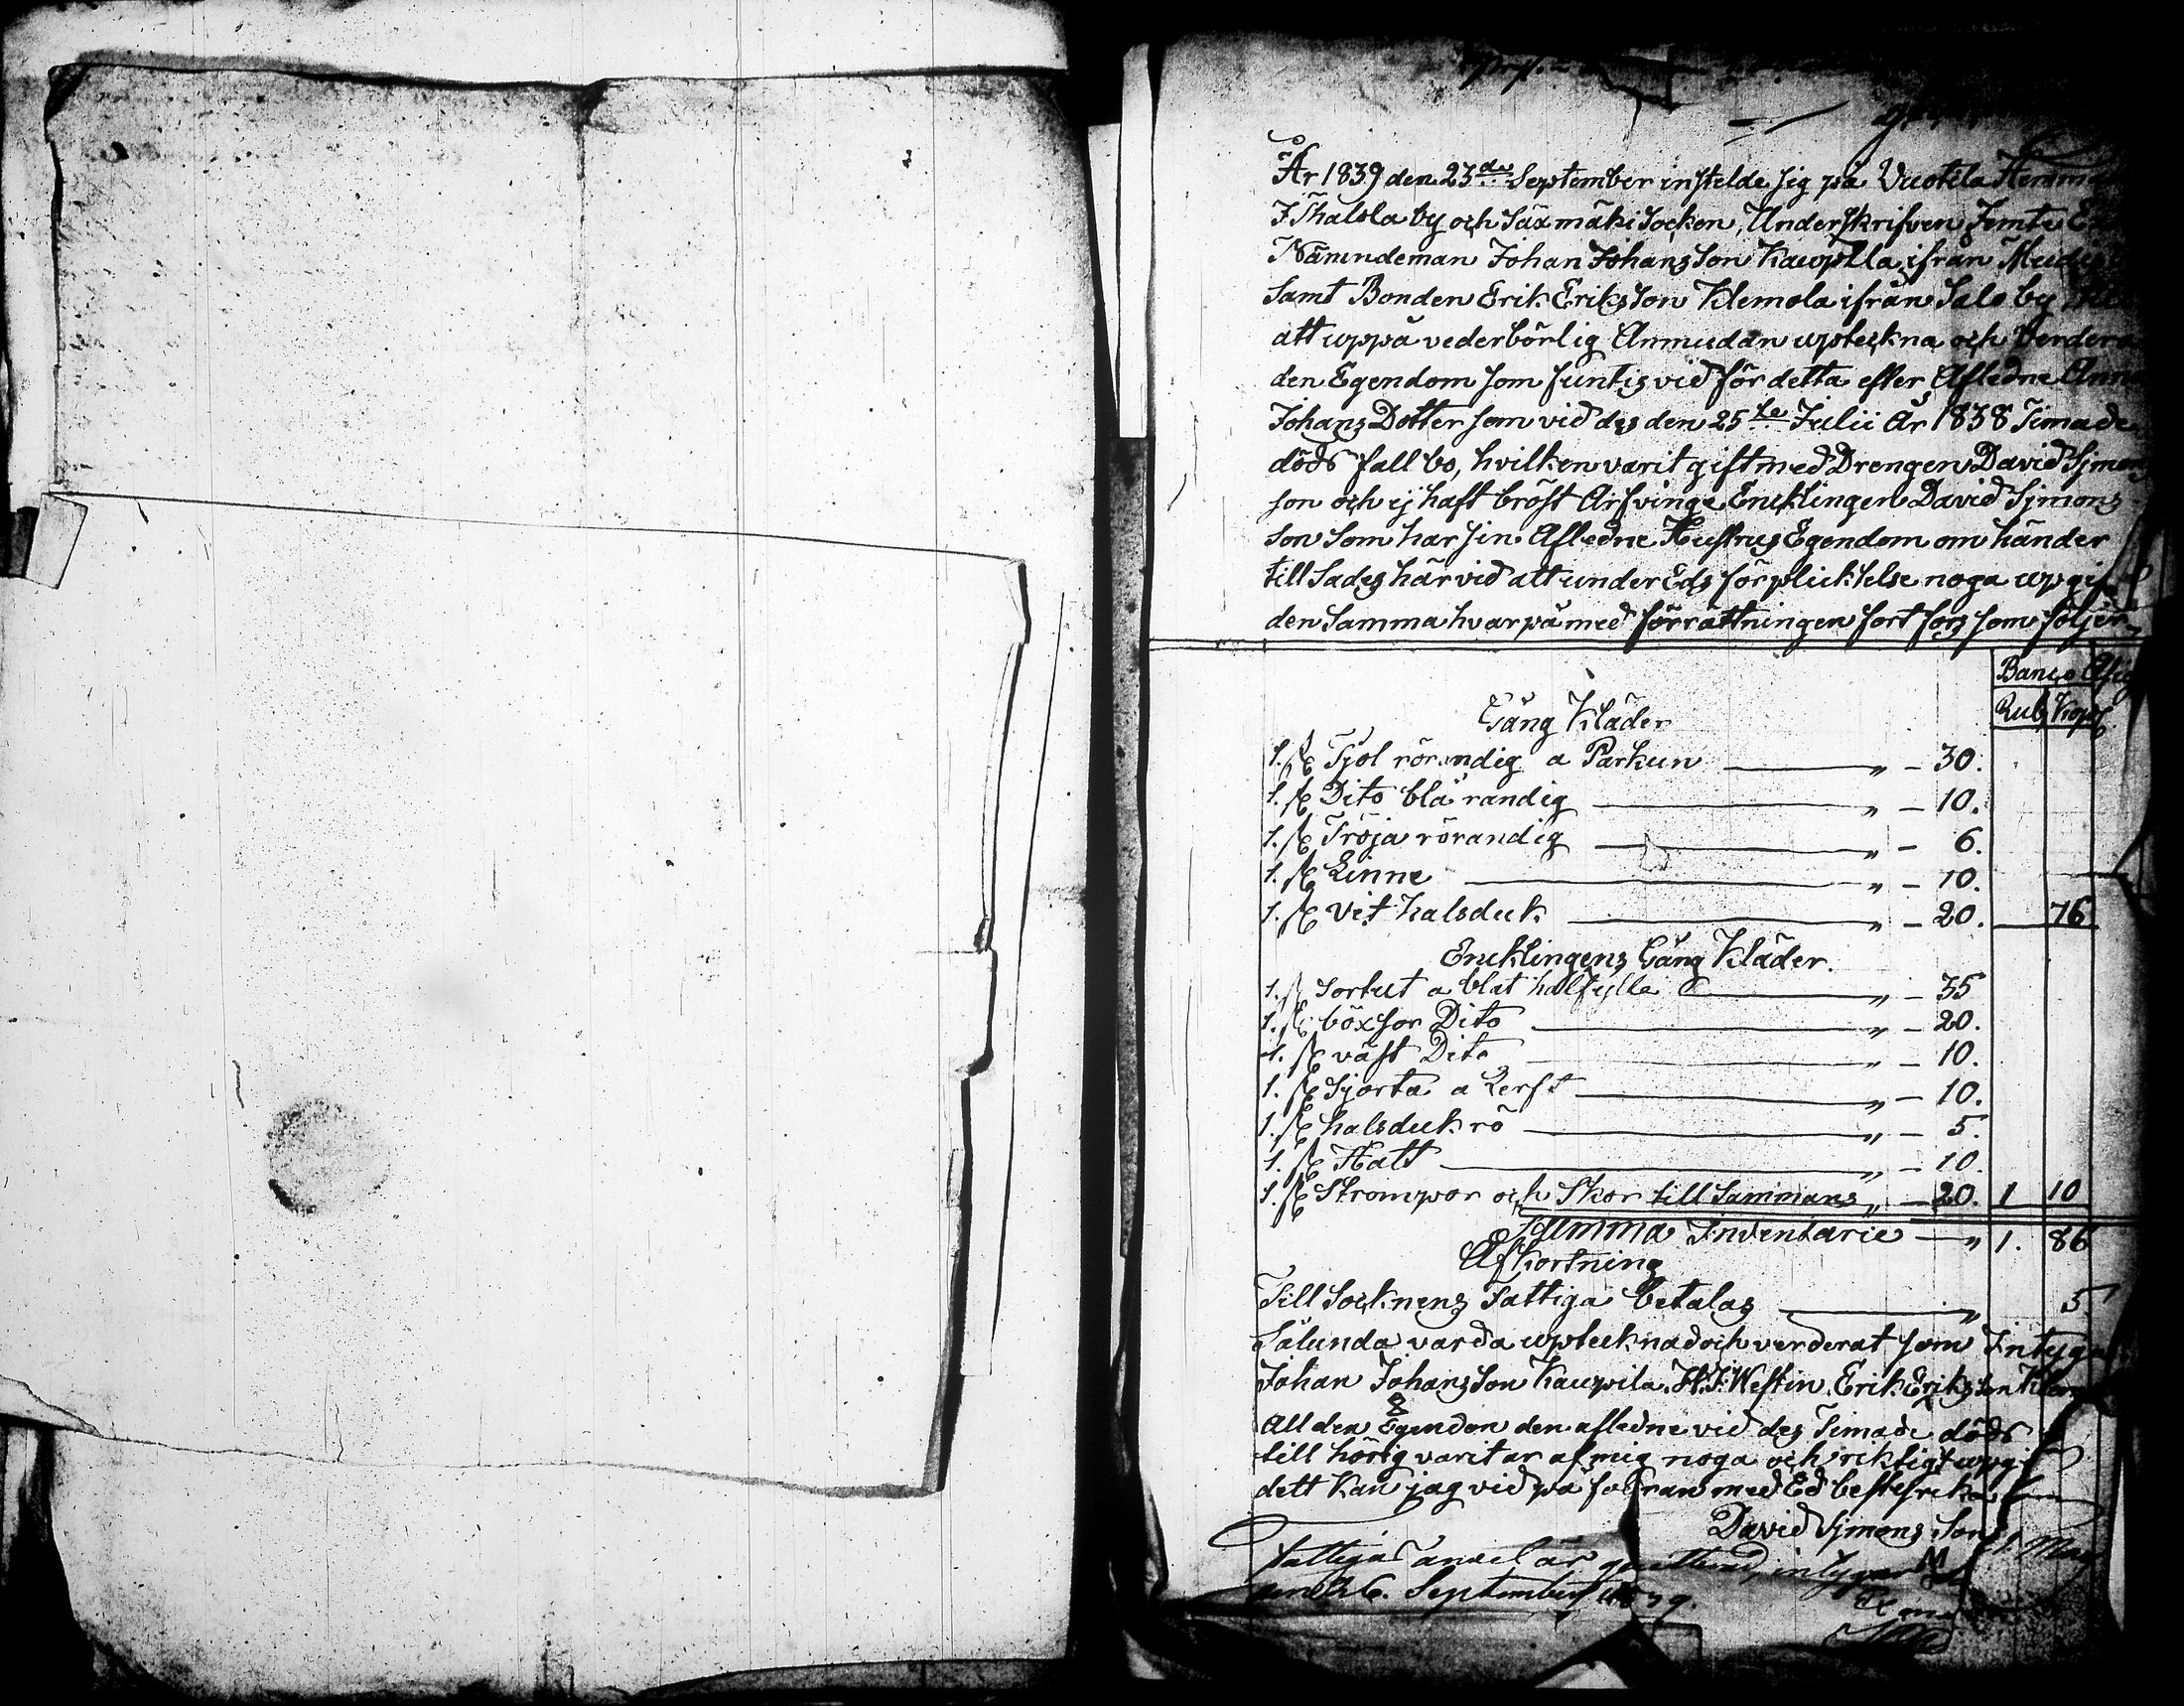 År 1839 den 23de September instelde sig på Vuotila
I Thalola by och Säxmäki Socken, Underskrifven Jemte
Nämndeman Johan Johansson Kaupila ifrån
samt Bonden Erik Eriksson Klemola ifrån Salo by
att uppå vederbörlig Anmudan upteckna och Verdera
den Egendom som funtis vid för detta efter Afledne Anna
Johans Dotter som vid des den 25te Julii År 1838 Timade
döds fall bo, hvilken varit gift med Drengen David Simons
son och ej haft bröst Arfvinge Encklingen David Simons
son som har sin Afledne Hustrus Egendom om händer
till Sades här vid att under Eds förplicktelse noga upgif
den Samma hvarpå med förrättningen fort fors som följer
Banco
Rub Kop
Gång Kläder
1. st Tjol rörandig a Parkun — „ — 30.
1. st Dito blå randig — „ — 10.
1. st Tröja rörandig — „ — 6.
1. st Linne — „ — 10.
1. st Vit halsduk — „ — 20. 76
Encklingens Gång Kläder.
1. st Sortut a blåt halfylle — „ — 35
1. st böxsor Dito — „ — 20.
1. st väst Dito — „ — 10.
1. st Sjorta a Lerft — „ — 10.
1. st halsduk rö — „ — 5.
1. st Hatt — „ — 10.
1. st Strompor och Skor till Sammans „ — 20. 1 10
Summa Inventarie — „ 1. 86
Afkortning
Till Socknens Fattiga betalas — „ 5.
Sålunda varda upteeknad och verderat som Intyga
Johan Johansson Kaupila. H. J. Westin. Erik Eriksson
All den Egendon den afledne vid des Timade döds
till hörig varit ar af mig noga och riktigt
dett Kan jag vid på fofran med Ed
David Simons Son
Fattiga andel är intygar
den 26. September 1839.